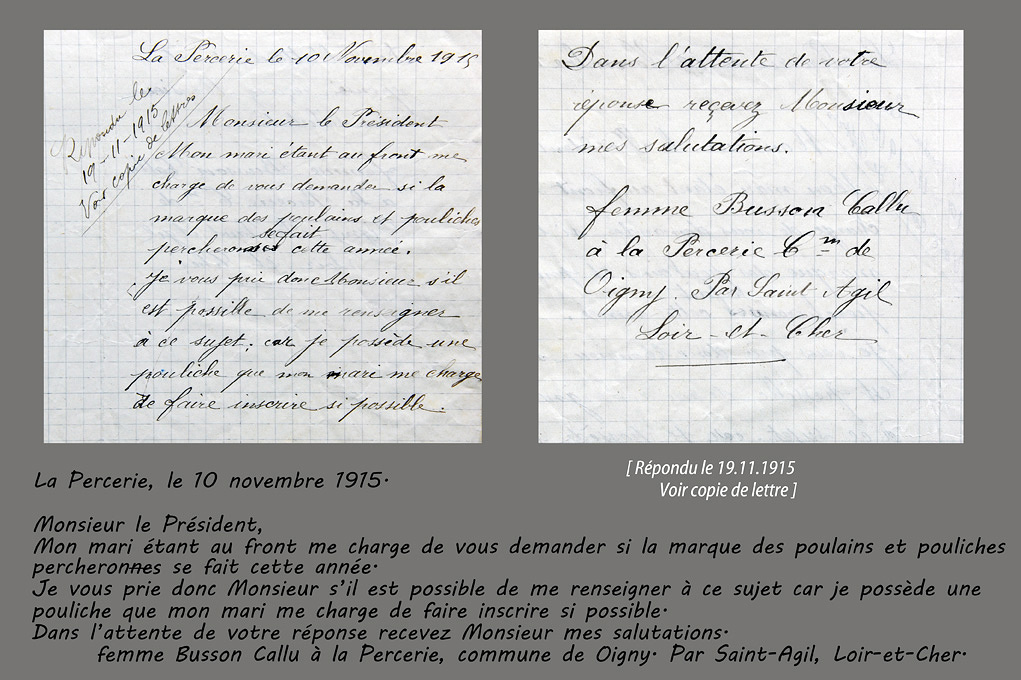 La Percerie le 10 Novembre 1915
Répondu le
19-11-1915
Voir copie de lettres
Monsieur le Président
Mon mari étant au front me
charge de vous demander si la
marque des poulains et pouliches
se fait
percheronnes cette année.
Je vous prie donc Monsieur s'il
est possille de me renseigner
à ce sujet; car je possède une
pouliche que mon mari me charge
de faire inscrire si possible.
Dans l'attente de votre
réponse reçevez Monsieur
mes salutations.
femme Busson Callu
à la Percerie Cm de
Oigny. Par Saint Agil
Loir-et-Cher
[ Répondu le 19.11.1915
Voir copie de lettre ]
La Percerie, le 10 novembre 1915.
Monsieur le Président,
Mon mari étant au front me charge de vous demander si la marque des poulains et pouliches
percheronnes se fait cette année.
Je vous prie donc Monsieur s'il est possible de me renseigner à ce sujet car je possède une
pouliche que mon mari me charge de faire inscrire si possible.
Dans l'attente de votre réponse recevez Monsieur mes salutations.
femme Busson Callu à la Percerie, commune de Oigny. Par Saint-Agil, Loir-et-Cher.